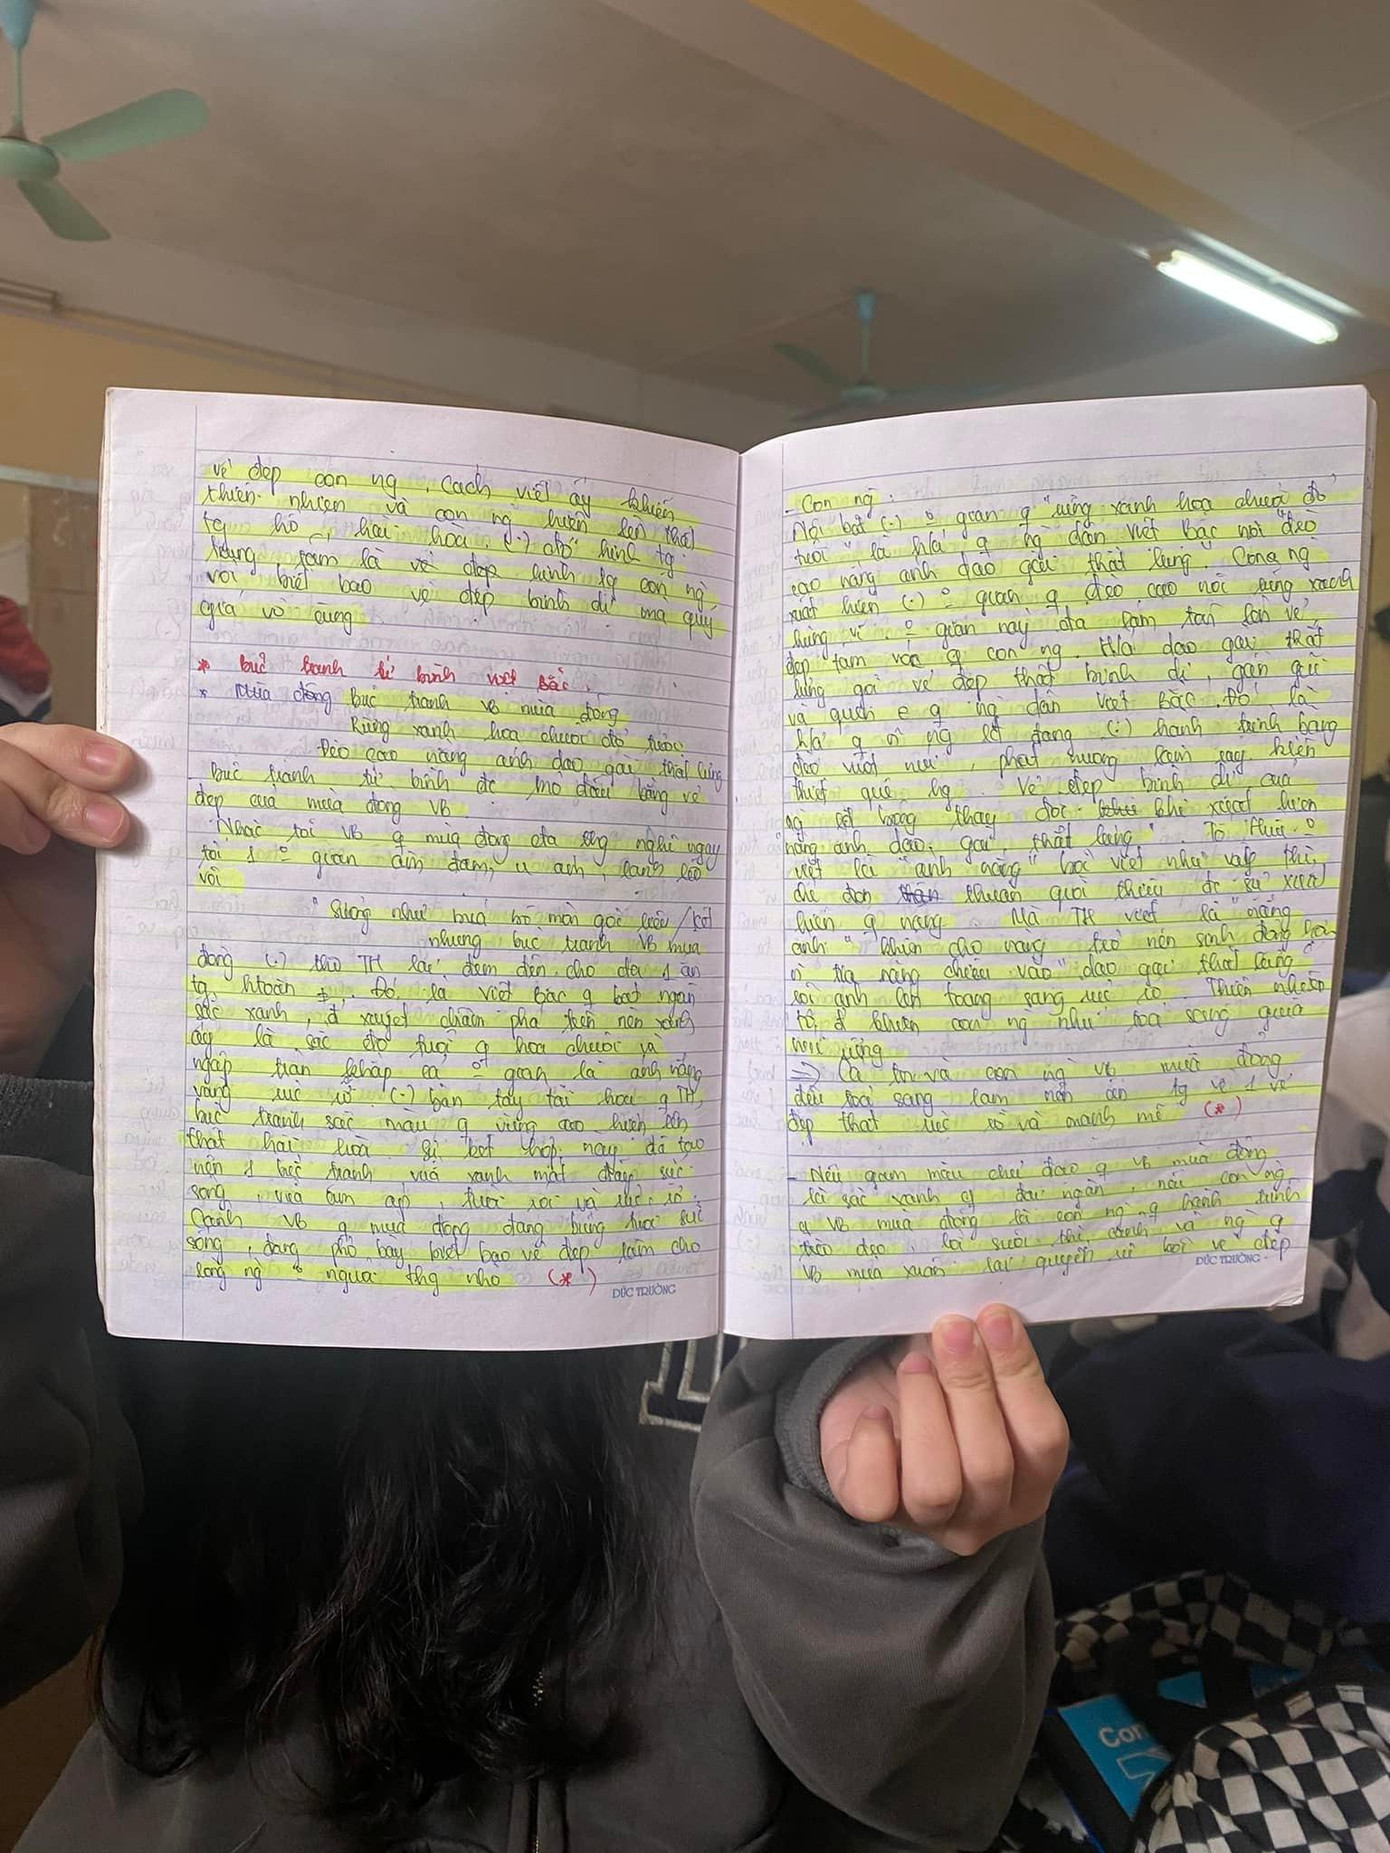 vẻ đẹp con ng. Cách viết ấy khiến
thiên nhiên và con ng hiện lên thật
hô, hài hòa (.) đó hình tg
trung tâm là vẻ đẹp hình tg con ng
với biết bao vẻ đẹp bình dị mà quý
giá vô cùng
* bức tranh tứ bình việt Bắc.
* Mùa đông bức tranh về mùa đông
Rừng xanh hoa chuối đỏ tươi
Đèo cao nắng ánh dao gài thắt lưng
bức tranh tứ bình đc mở đầu bằng vẻ
đẹp của mùa đông VB
Nhắc tới VB q mùa đông ta thg nghĩ ngay
tới 1 º gian ảm đạm, u ám, lạnh lẽo
với
" Sương như búa bổ mòn gốc liễu /
nhưng bức tranh VB mùa
đông (.) thơ TH lại đem đến cho ta 1 ấn
tg htoàn ≠. Đó là việt Bắc q bạt ngàn
sắc xanh, xuyết chấm phá trên nền xanh
ấy là sắc đỏ tươi q hoa chuối và
ngập tràn khắp cả º gian là ánh nắng
vàng rực rỡ. (.) bàn tay tài hoa q TH,
bức tranh sắc màu q vùng cao hiện lên
thật hài hòa. Sự kết hợp này đã tạo
nên 1 bức tranh vừa xanh mát đầy sức
sống, vừa ấm áp, tươi rói và rực rỡ.
Cảnh VB q mùa đông đang bừng lên sức
sống, đang phô bày biết bao vẻ đẹp làm cho
lòng ng º nguôi thg nhớ (*)
ĐỨC TRƯỜNG
- Con ng:
Nổi bật (.) º gian q "rừng xanh hoa chuối đỏ
tươi" là h/a q ng dân việt Bắc với "đèo
cao nắng ánh dao gài thắt lưng". Con ng
xuất hiện (.) º gian q đèo cao núi rừng xanh
hùng vĩ. º gian này đã làm
đẹp tầm vóc q con ng. H/a dao gài thắt
lưng gợi vẻ đẹp thật bình dị, gần gũi
và quen q ng dân Việt Bắc. Đó là
h/a q ng đang (.) hành trình băng
đèo vượt núi, phát nương làm rẫy kiến
thiết quê hg. Vẻ đẹp bình dị của
ng khi xuất hiện
"nắng ánh dao gài thắt lưng". Tố Hữu º
viết là "ánh nắng" bởi viết như vậy thì
chỉ đơn thuần giới thiệu đc sự xuất
hiện q nắng. Mà TH viết là "nắng
ánh" khiến cho nắng trở nên sinh động hơn
vì tia nắng chiếu vào "dao gài thắt lưng"
rồi ánh lên loang sáng rực rỡ. Thiên nhiên
khiến con ng như tỏa sáng giữa
núi rừng
=> Cả tn và con ng VB mùa đông
đều tỏa sáng làm nên ấn tg về 1 vẻ
đẹp thật rực rỡ và mạnh mẽ (*)
- Nếu gam màu chủ đạo q VB mùa đông
là sắc xanh q đại ngàn, nếu con ng
q VB mùa đông là con ng q hành trình
trèo đèo, lội suối thì cảnh và ng q
VB mùa xuân lại quyến rũ bởi vẻ đẹp
ĐỨC TRƯỜNG
Con